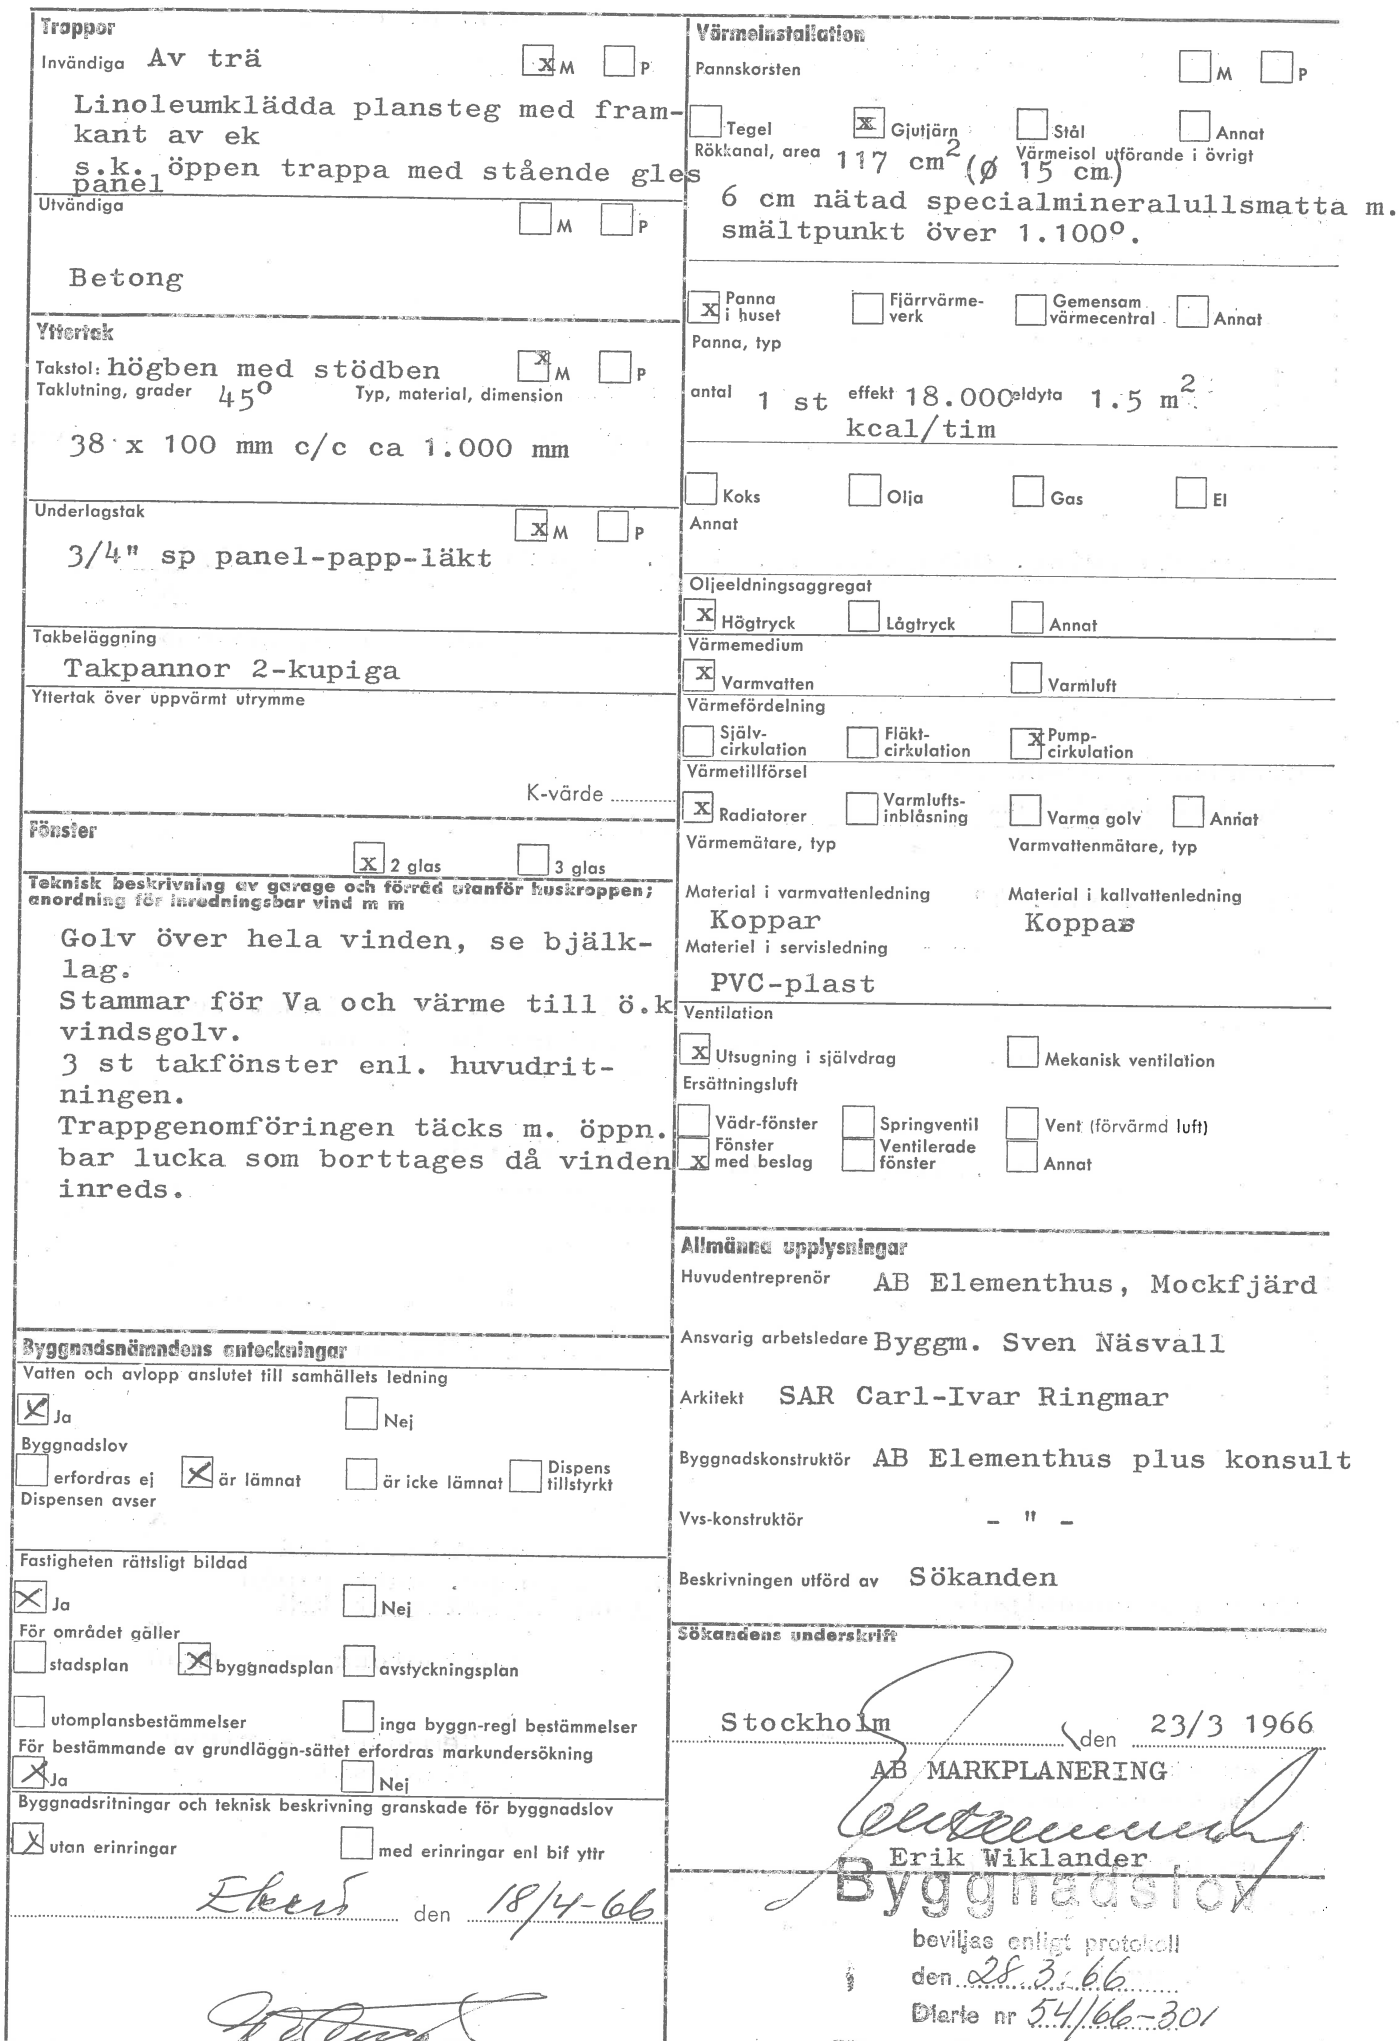 Trappor
Invändiga Av trä x M P
Linoleumklädda plansteg med fram-
kant av ek
s.k. öppen trappa med stående gles
panel
Utvändiga M P
Betong
Yttertak
Takstol: högben med stödben x M P
Taklutning, grader 45° Typ, material, dimension
38 x 100 mm c/c ca 1.000 mm
Underlagstak x M P
3/4" sp panel-papp-läkt
Takbeläggning
Takpannor 2-kupiga
Yttertak över uppvärmt utrymme
K-värde ..........
Fönster
x 2 glas 3 glas
Teknisk beskrivning av garage och förråd utanför huskroppen;
anordning för inredningsbar vind m m
Golv över hela vinden, se bjälk-
lag.
Stammar för Va och värme till ö.k
vindsgolv.
3 st takfönster enl. huvudrit-
ningen.
Trappgenomföringen täcks m. öppn.
bar lucka som borttages då vinden
inreds.
Byggnadsnämndens anteckningar
Vatten och avlopp anslutet till samhällets ledning
x Ja Nej
Byggnadslov
erfordras ej x är lämnat är icke lämnat Dispens
tillstyrkt
Dispensen avser
Fastigheten rättsligt bildad
x Ja Nej
För området gäller
stadsplan x byggnadsplan avstyckningsplan
utomplansbestämmelser inga byggn-regl bestämmelser
För bestämmande av grundläggn-sättet erfordras markundersökning
x Ja Nej
Byggnadsritningar och teknisk beskrivning granskade för byggnadslov
x utan erinringar med erinringar enl bif yttr
Ekerö den 18/4-66
Värmeinstallation
Pannskorsten M P
Tegel x Gjutjärn Stål Annat
Rökkanal, area 117 cm² (ø 15 cm) Värmeisol utförande i övrigt
6 cm nätad specialmineralullsmatta m.
smältpunkt över 1.100°.
x Panna
i huset Fjärrvärme-
verk Gemensam
värmecentral Annat
Panna, typ
antal 1 st effekt 18.000 eldyta 1.5 m²
kcal/tim
Koks Olja Gas El
Annat
Oljeeldningsaggregat
x Högtryck Lågtryck Annat
Värmemedium
x Varmvatten Varmluft
Värmefördelning
Själv-
cirkulation Fläkt-
cirkulation x Pump-
cirkulation
Värmetillförsel
x Radiatorer Varmlufts-
inblåsning Varma golv Annat
Värmemätare, typ Varmvattenmätare, typ
Material i varmvattenledning Material i kallvattenledning
Koppar Koppar
Materiel i servisledning
PVC-plast
Ventilation
x Utsugning i självdrag Mekanisk ventilation
Ersättningsluft
Vädr-fönster Springventil Vent (förvärmd luft)
x Fönster
med beslag Ventilerade
fönster Annat
Allmänna upplysningar
Huvudentreprenör AB Elementhus, Mockfjärd
Ansvarig arbetsledare Byggm. Sven Näsvall
Arkitekt SAR Carl-Ivar Ringmar
Byggnadskonstruktör AB Elementhus plus konsult
Vvs-konstruktör - " -
Beskrivningen utförd av Sökanden
Sökandens underskrift
Stockholm den 23/3 1966
AB MARKPLANERING
Erik Wiklander
Byggnadslov
beviljas enligt protokoll
den 28.3.66
Diarie nr 54/66-301